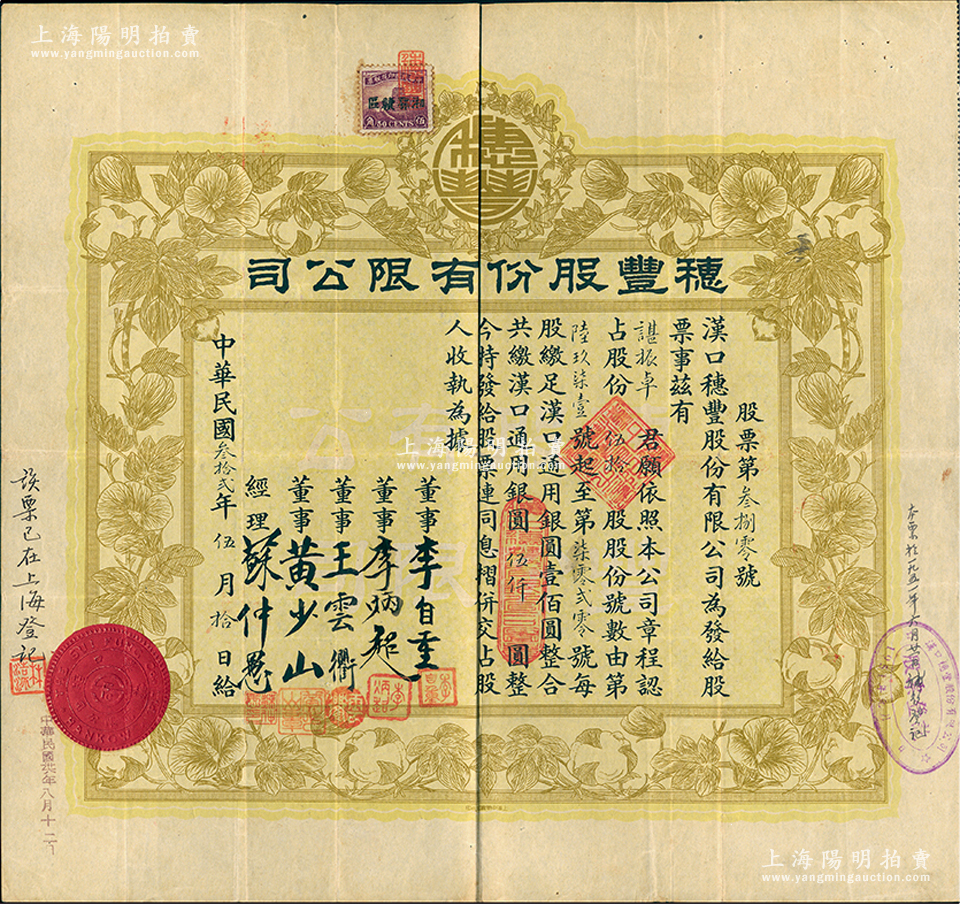 上海陽明拍賣
www.yangmingauction.com
湘鄂贛區
伍
角
50 CENTS
穗豐
穗豐股份有限公司
股票第叁捌零號
漢口穗豐股份有限公司為發給股
票事茲有
諶振卓 君願依照本公司章程認
占股份伍拾股股份號數由第
陸玖柒壹號起至第柒零貳零號每
股繳足漢口通用銀圓壹佰圓整合
共繳漢口通用銀圓伍仟圓整
今特發給股票連同息摺併交占股
人收執為據
董事李自重
董事李炳超
董事王雲衢
董事黃少山
經理蘇仲愚
中華民國叁拾貳年伍月拾日給
上海陽明拍賣
www.yangmingauction.com
該票已在上海登記
漢口穗豐股份有限公司
HANKOW
上海陽明拍賣
www.yangmingauction.com